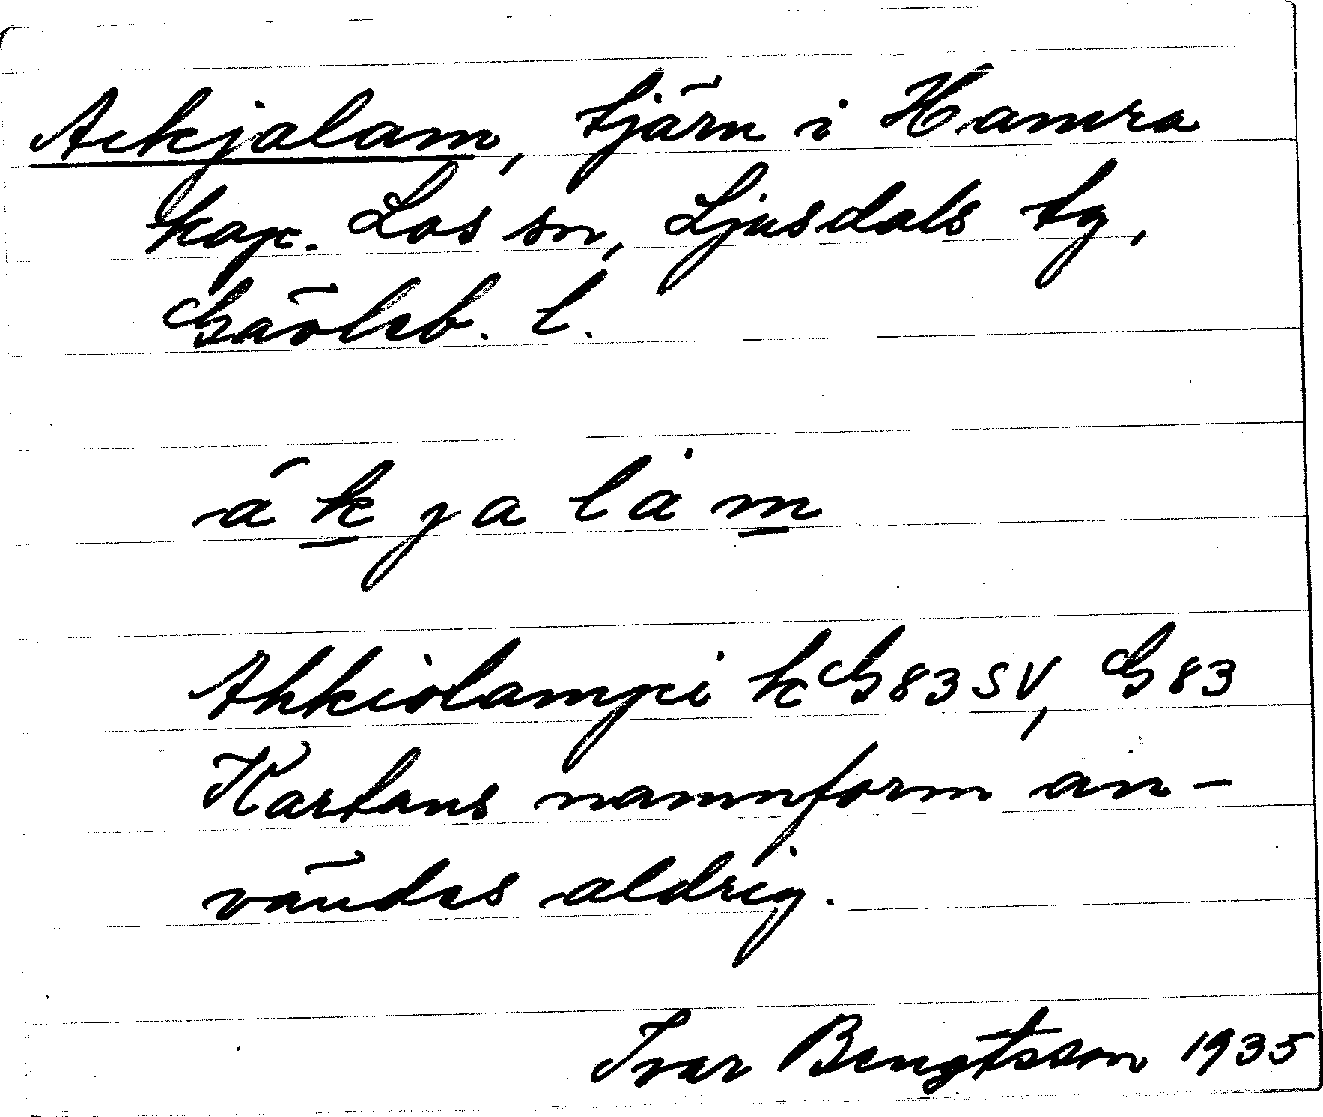 Ackjalam, tjärn i Hamra
kap. Los sn, Ljusdals tg,
Gävleb. l.
ákjalȧm
Ahkiolampi k G83SV, G83
Kartans namnform an-
vändes aldrig.
Ivar Bengtsson 1935